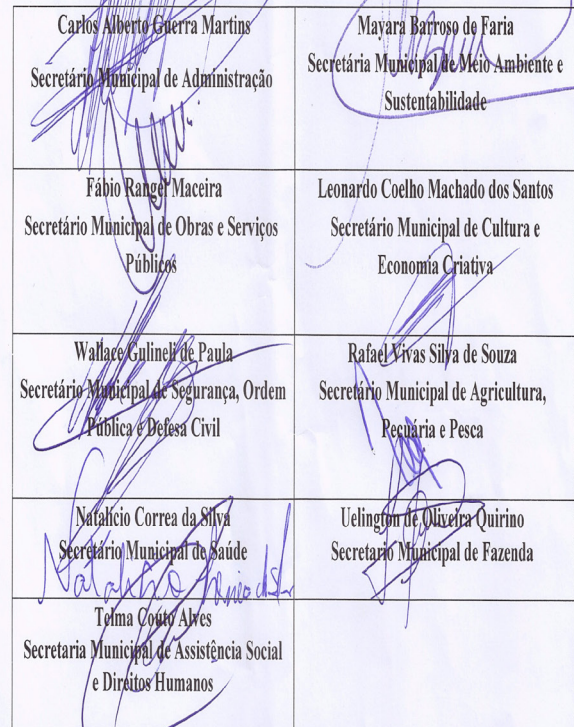 Carlos Alberto Guerra Martins
Secretário Municipal de Administração
Mayara Barroso de Faria
Secretária Municipal de Meio Ambiente e
Sustentabilidade
Fábio Rangel Maceira
Secretário Municipal de Obras e Serviços
Públicos
Leonardo Coelho Machado dos Santos
Secretário Municipal de Cultura e
Economia Criativa
Wallace Gulineli de Paula
Secretário Municipal de Segurança, Ordem
Pública e Defesa Civil
Rafael Vivas Silva de Souza
Secretário Municipal de Agricultura,
Pecuária e Pesca
Natalício Correa da Silva
Secretário Municipal de Saúde
Uelington de Oliveira Quirino
Secretario Municipal de Fazenda
Telma Couto Alves
Secretaria Municipal de Assistência Social
e Direitos Humanos